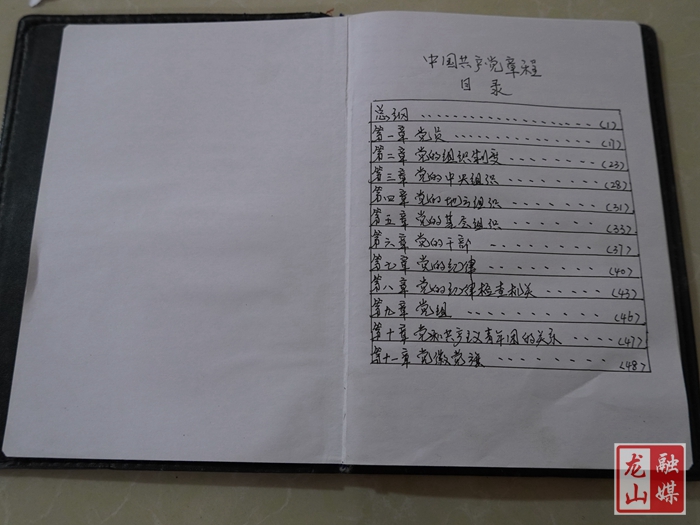 中国共产党章程
目录
总纲 ........................ (1)
第一章 党员 .................. (17)
第二章 党的组织制度 ........ (23)
第三章 党的中央组织 ........ (28)
第四章 党的地方组织 ........ (31)
第五章 党的基层组织 ........ (33)
第六章 党的干部 ........ (37)
第七章 党的纪律 ........ (40)
第八章 党的纪律检查机关 ...... (43)
第九章 党组 ........ (46)
第十章 党和共产主义青年团的关系 ..... (47)
第十一章 党徽党旗 ........ (48)
龙山融媒